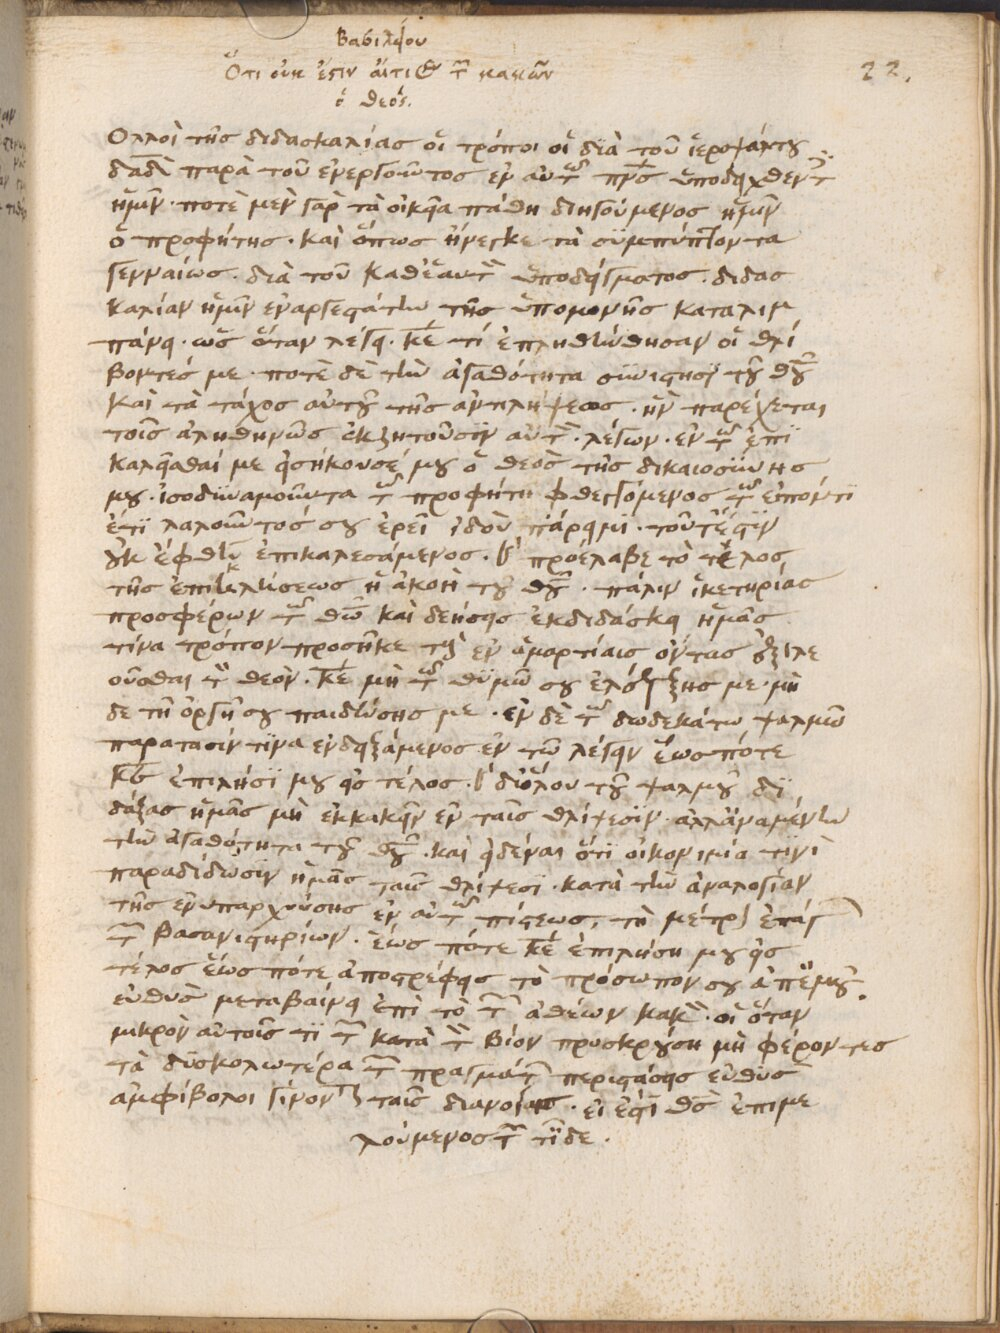 Βασιλείου
Ὅτι οὐκ ἔστιν αἴτιος τῶν κακῶν
ὁ θεός.
22.
Ολλοὶ τῆς διδασκαλίας οἱ τρόποι οἱ διὰ τοῦ ἱεροψάλτου
δαδὶ παρὰ τοῦ ἐνεργοῦντος ἐν αὐτῶ πνς ὑποδειχθέντες
ἡμῖν· ποτὲ μὲν γὰρ τὰ οἰκεῖα πάθη διηγούμενος ἡμῖν
ὁ προφήτης· καὶ ὅπως ἤνεγκε τὰ συμπίπτοντα
γενναίως· διὰ τοῦ καθ' ἑαυτὸν ὑποδείγματος· διδασ
καλίαν ἡμῖν ἐναργεστάτην τῆς ὑπομονῆς καταλιμ
πάνει· ὡς ὅταν λέγει· κε τί ἐπληθύνθησαν οἱ θλί
βοντές με· ποτὲ δὲ τὴν ἀγαθότητα συνίστησι τοῦ θυ
καὶ τὸ τάχος αὐτοῦ τῆς ἀντιλήψεως· ἣν παρέχεται
τοῖς ἀληθινῶς ἐκζητοῦσιν αὐτόν· λέγων· ἐν τῶ ἐπι
καλεῖσθαί με εἰσήκουσέ μου ὁ θεὸς τῆς δικαιοσύνης
μου· ἰσοδυναμοῦντα τῶ προφήτη φθεγγόμενος τῶ εἰπόντι
ἔτι λαλοῦντός σου ἐρεῖ ἰδοὺ πάρειμι· τουτέστιν
οὐκ ἔφθην ἐπικαλεσάμενος· καὶ προέλαβε τὸ τέλος
τῆς ἐπικλήσεως ἡ ἀκοὴ τοῦ θυ· πάλιν ἱκετηρίας
προσφέρων τῶ θω καὶ δεήσεις ἐκδιδάσκει ἡμᾶς
τίνα τρόπον προσῆκε τοὺς ἐν ἁμαρτίαις ὄντας ἐξιλε
οῦσθαι τὸν θεόν· κε μὴ τῶ θυμῶ σου ἐλέγξης με· μη
δὲ τῆ ὀργῆ σου παιδεύσης με· ἐν δὲ τῶ δωδεκάτω ψαλμῶ
παρατασίν τινα ἐνδειξάμενος ἐν τῶ λέγειν ἕως πότε
κε ἐπιλήση μου εἰς τέλος· καὶ δι' ὅλου τοῦ ψαλμοῦ δι
δάξας ἡμᾶς μὴ ἐκκακεῖν ἐν ταῖς θλίψεσιν· ἀλλ' ἀναμένειν
τὴν ἀγαθότητα τοῦ θυ· καὶ εἰδέναι ὅτι οἰκονομία τινὶ
παραδίδωσιν ἡμᾶς ταῖς θλίψεσι· κατὰ τὴν ἀναλογίαν
τῆς ἐνυπαρχούσης ἐν αὐτῶ πίστεως, τὴ μέτρον ἐπάγ
τῶν βασανιστηρίων· ἕως πότε κε ἐπιλήση μου εἰς
τέλος ἕως πότε ἀποστρέφεις τὸ πρόσωπόν σου ἀπ' ἐμοῦ.
εὐθὺς μεταβαίνει ἐπὶ τὸ τῶν ἀθέων κακόν· οἳ ὅταν
μικρὸν αὐτοῖς τι τῶν κατὰ τὸν βίον προσκρούση μὴ φέροντες
τὰ δυσκολωτέρα τῶν πραγμάτων περιστάσεις εὐθὺς
ἀμφίβολοι γίνονται ταῖς διανοίαις· εἰ ἔστι θς ἐπιμε
λούμενος τῶν τῇδε.